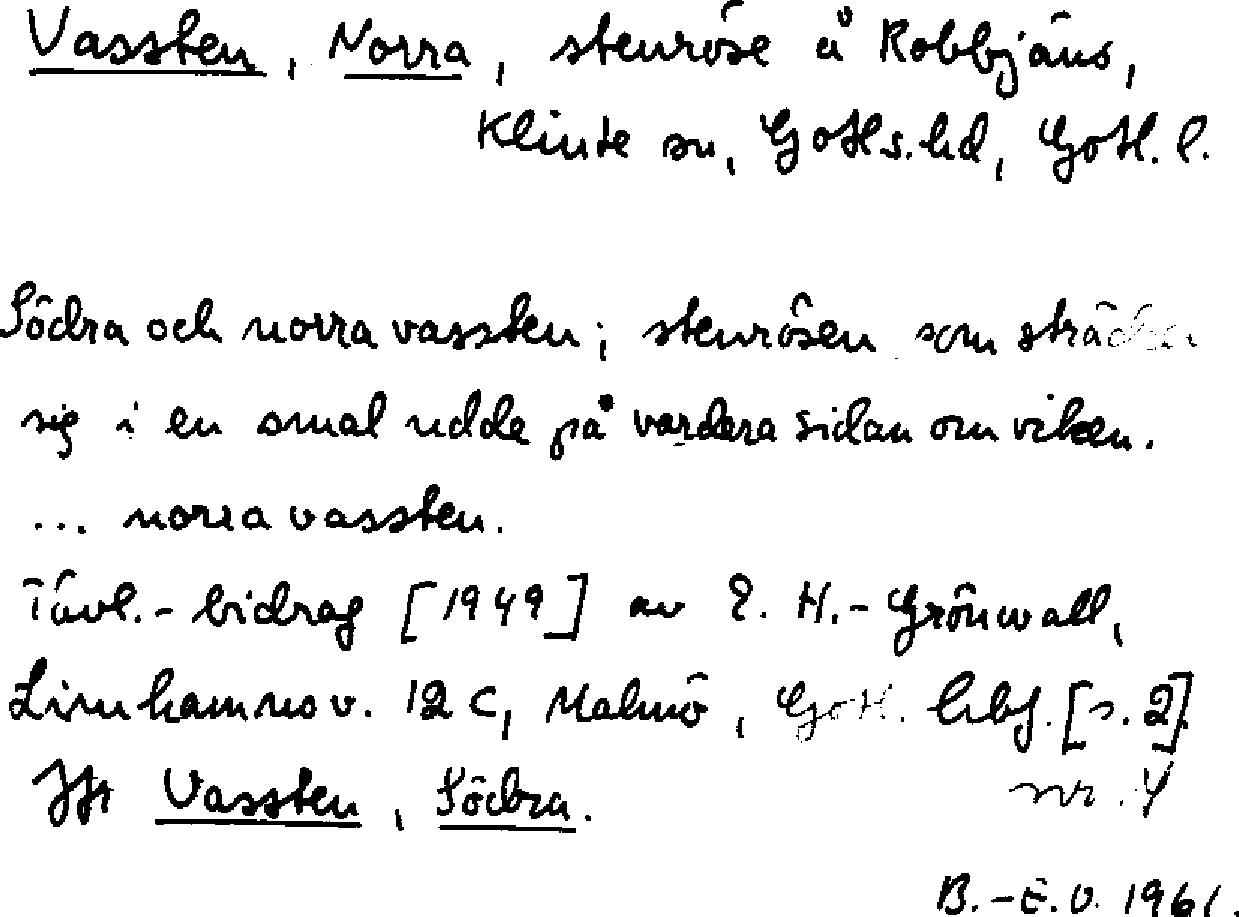 Vassten, Norra, stenröse å Robbjäns,
Klinte sn, Gotls.hd, Gotl. l.
Södra och norra vassten; stenrösen som sträcker
sig i en smal udde på vardera sidan om viken.
... norra vassten.
Tävl.-bidrag [1949] av E. H.-Grönwall,
Limhamnsv. 12 C, Malmö, Gotl. hbf. [s. 2]
nr. 4
Jfr Vassten, Södra.
B.-E.O. 1961.